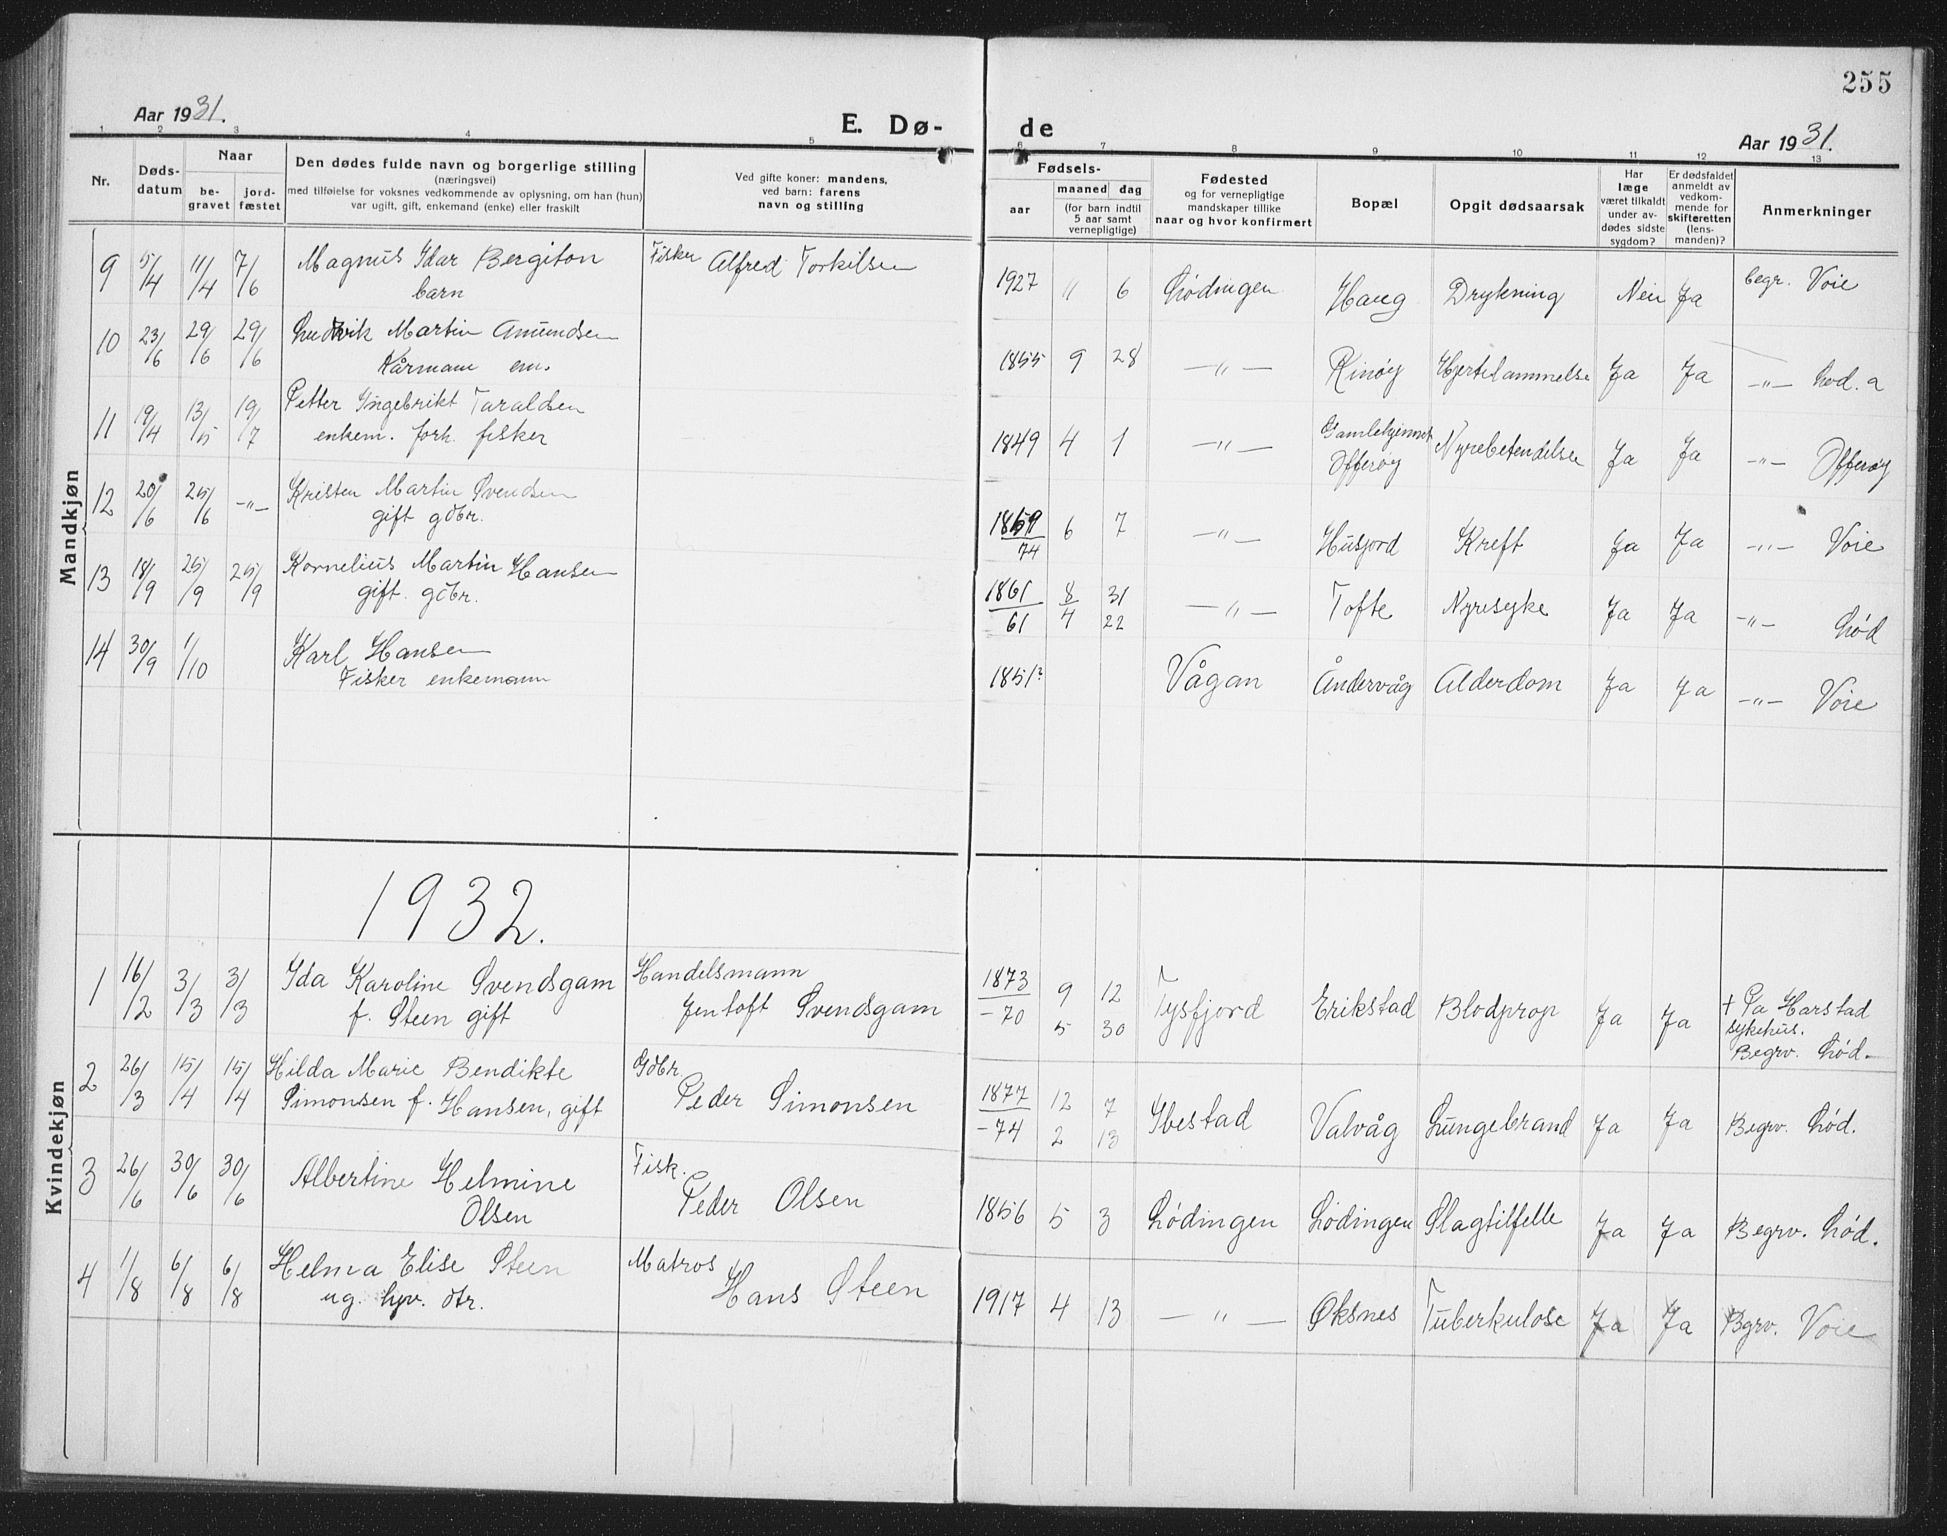 255
Aar 1931.
E. Dø-
de
Aar 1931.
1 2 3 4 5 6 7 8 9 10 11 12 13
Nr.
Døds-
datum
Naar
be-
gravet
jord-
fæstet
Den dødes fulde navn og borgerlige stilling
(næringsvei)
med tilføielse for voksnes vedkommende av oplysning, om han (hun)
var ugift, gift, enkemand (enke) eller fraskilt
Ved gifte koner: mandens,
ved barn: farens
navn og stilling
Fødsels-
aar
maaned dag
(for barn indtil
5 aar samt
vernepligtige)
Fødested
og for vernepligtige
mandskaper tillike
naar og hvor konfirmert
Bopæl
Opgit dødsaarsak
Har
læge
været tilkaldt
under av-
dødes sidste
sygdom?
Er dødsfaldet
anmeldt av
vedkom-
mende for
skifteretten
(lens-
manden)?
Anmerkninger
Mandkjøn
9 5/4 11/4 7/6 Magnus Idar Bergiton Fisker Alfred Torkilsen 1927 " 6 Lødingen Haug Drukning Nei Ja begr. Voie
barn
10 23/6 29/6 29/6 Ludvik Martin Amundsen 1855 9 28 —"— Rinøy Hjertelammelse Ja Ja —"— Lød. a
Kårmann em.
11 19/4 13/5 19/7 Petter Ingebrikt Taraldsen 1849 4 1 —"— Gamlehjemmet Nyrebetendelse Ja Ja —"— Offerøy
enkem. forh. fisker Offerøy
12 20/6 25/6 —"— Kristen Martin Svendsen 1859 6 7 —"— Husjord Kreft Ja Ja —"— Voie
gift gdbr. 74
13 18/9 25/9 25/9 Kornelius Martin Hansen 1861 8 31 —"— Tofte Nyresyke Ja Ja —"— Lød
gift. gdbr. 61 4 22
14 30/9 1/10 Karl Hansen 1851? Vågan Åndervåg Alderdom Ja Ja —"— Voie
Fisker enkemann
Kvindekjøn
1932.
1 16/2 3/3 3/3 Ida Karoline Svendsgam Handelsmann 1873 9 12 Tysfjord Erikstad Blodprop Ja Ja + Pa Harstad
f. Steen gift Jentoft Svendsgam -70 5 30 sykehus.
Begrv. Lød.
2 26/3 15/4 15/4 Hilda Marie Bendikte Gdbr. 1877 12 7 Ibestad Valvåg Lungebrand Ja Ja Begrv. Lød.
Simonsen f. Hansen, gift Peder Simonsen -74 2 13
3 26/6 30/6 30/6 Albertine Helmine Fisk. 1856 5 3 Lødingen Lødingen Slagtilfelle Ja Ja Begrv. Lød.
Olsen Peder Olsen
4 1/8 6/8 6/8 Helma Elise Steen Matros 1917 4 13 —"— Øksnes Tuberkulose Ja Ja Bgrv. Voie
ug. hjv. dtr. Hans Steen